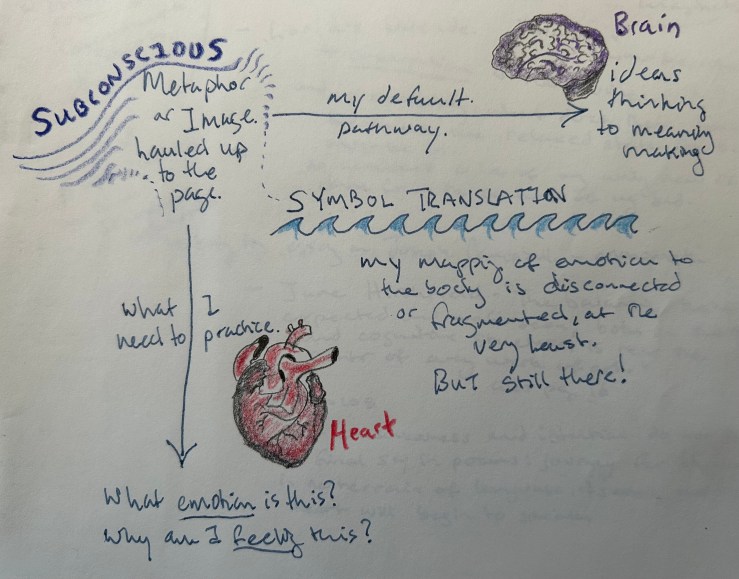 SUBCONSCIOUS
Metaphor
or Image.
hauled up
to the
page.
my default.
pathway.
Brain
ideas
thinking
to meaning
making
SYMBOL TRANSLATION
my mapping of emotion to
the body is disconnected
or fragmented, at the
very least.
BUT still there!
what I
need to practice.
Heart
What emotion is this?
why am I feeling this?